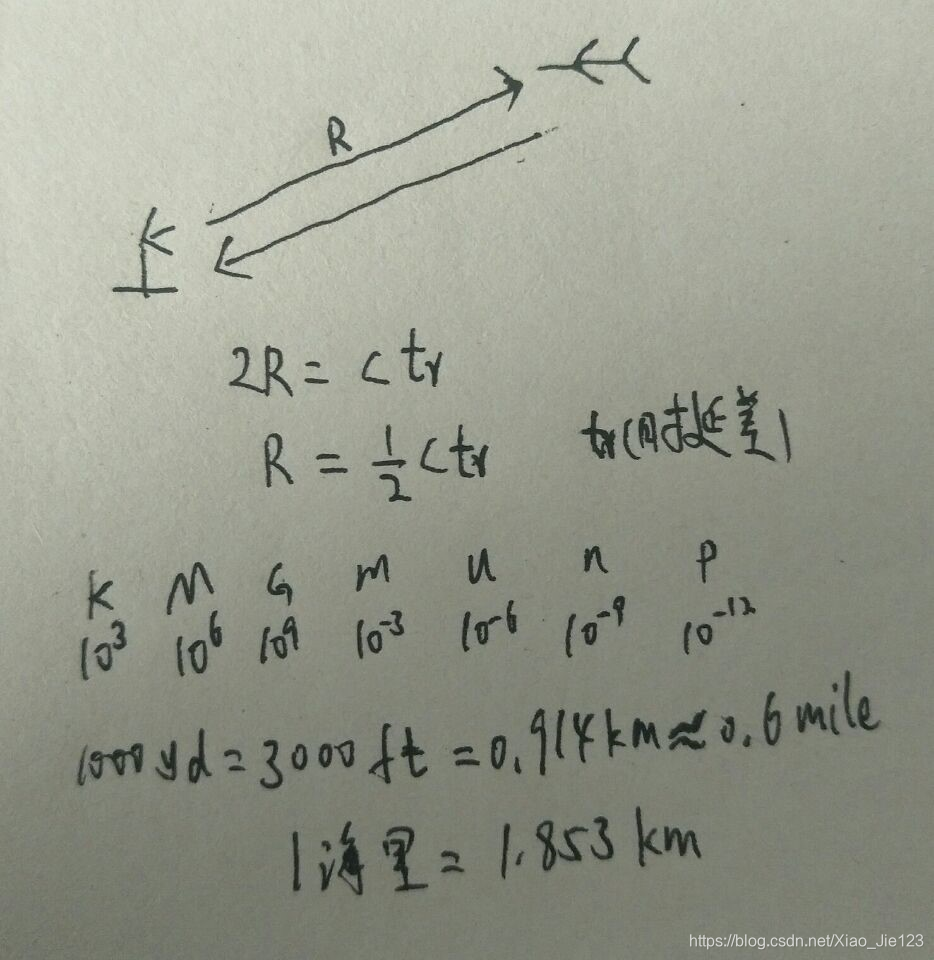 R
2R = c tr
R = 1/2 c tr  tr(时延差)
K M G m u n p
10³ 10⁶ 10⁹ 10⁻³ 10⁻⁶ 10⁻⁹ 10⁻¹²
1000yd = 3000ft = 0.914km ≈ 0.6 mile
1海里 = 1.853 km
https://blog.csdn.net/Xiao_Jie123